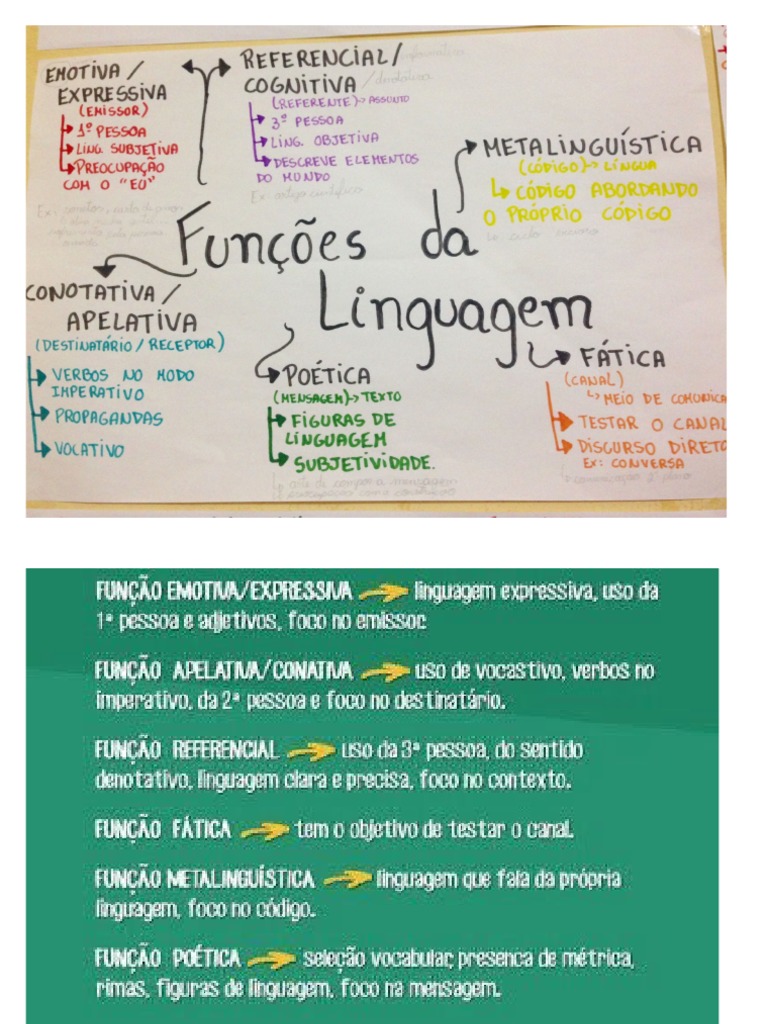 EMOTIVA /
EXPRESSIVA
(EMISSOR)
1ª PESSOA
LING. SUBJETIVA
PREOCUPAÇÃO
COM O "EU"
REFERENCIAL/
COGNITIVA
(REFERENTE)→ ASSUNTO
3ª PESSOA
LING. OBJETIVA
DESCREVE ELEMENTOS
DO MUNDO
Ex: artigo científico
METALINGUÍSTICA
(CÓDIGO)→ LÍNGUA
CÓDIGO ABORDANDO
O PRÓPRIO CÓDIGO
Funções da
Linguagem
CONOTATIVA/
APELATIVA
(DESTINATÁRIO / RECEPTOR)
VERBOS NO MODO
IMPERATIVO
PROPAGANDAS
VOCATIVO
POÉTICA
(MENSAGEM)→ TEXTO
FIGURAS DE
LINGUAGEM
SUBJETIVIDADE.
FÁTICA
(CANAL)
MEIO DE COMUNICA
TESTAR O CANAL
DISCURSO DIRETO
EX: CONVERSA
FUNÇÃO EMOTIVA/EXPRESSIVA → linguagem expressiva, uso da
1ª pessoa e adjetivos, foco no emissor.
FUNÇÃO APELATIVA/CONATIVA → uso de vocastivo, verbos no
imperativo, da 2ª pessoa e foco no destinatário.
FUNÇÃO REFERENCIAL → uso da 3ª pessoa, do sentido
denotativo, linguagem clara e precisa, foco no contexto.
FUNÇÃO FÁTICA → tem o objetivo de testar o canal.
FUNÇÃO METALINGUÍSTICA → linguagem que fala da própria
linguagem, foco no código.
FUNÇÃO POÉTICA → seleção vocabular, presenca de métrica,
rimas, figuras de linguagem, foco na mensagem.